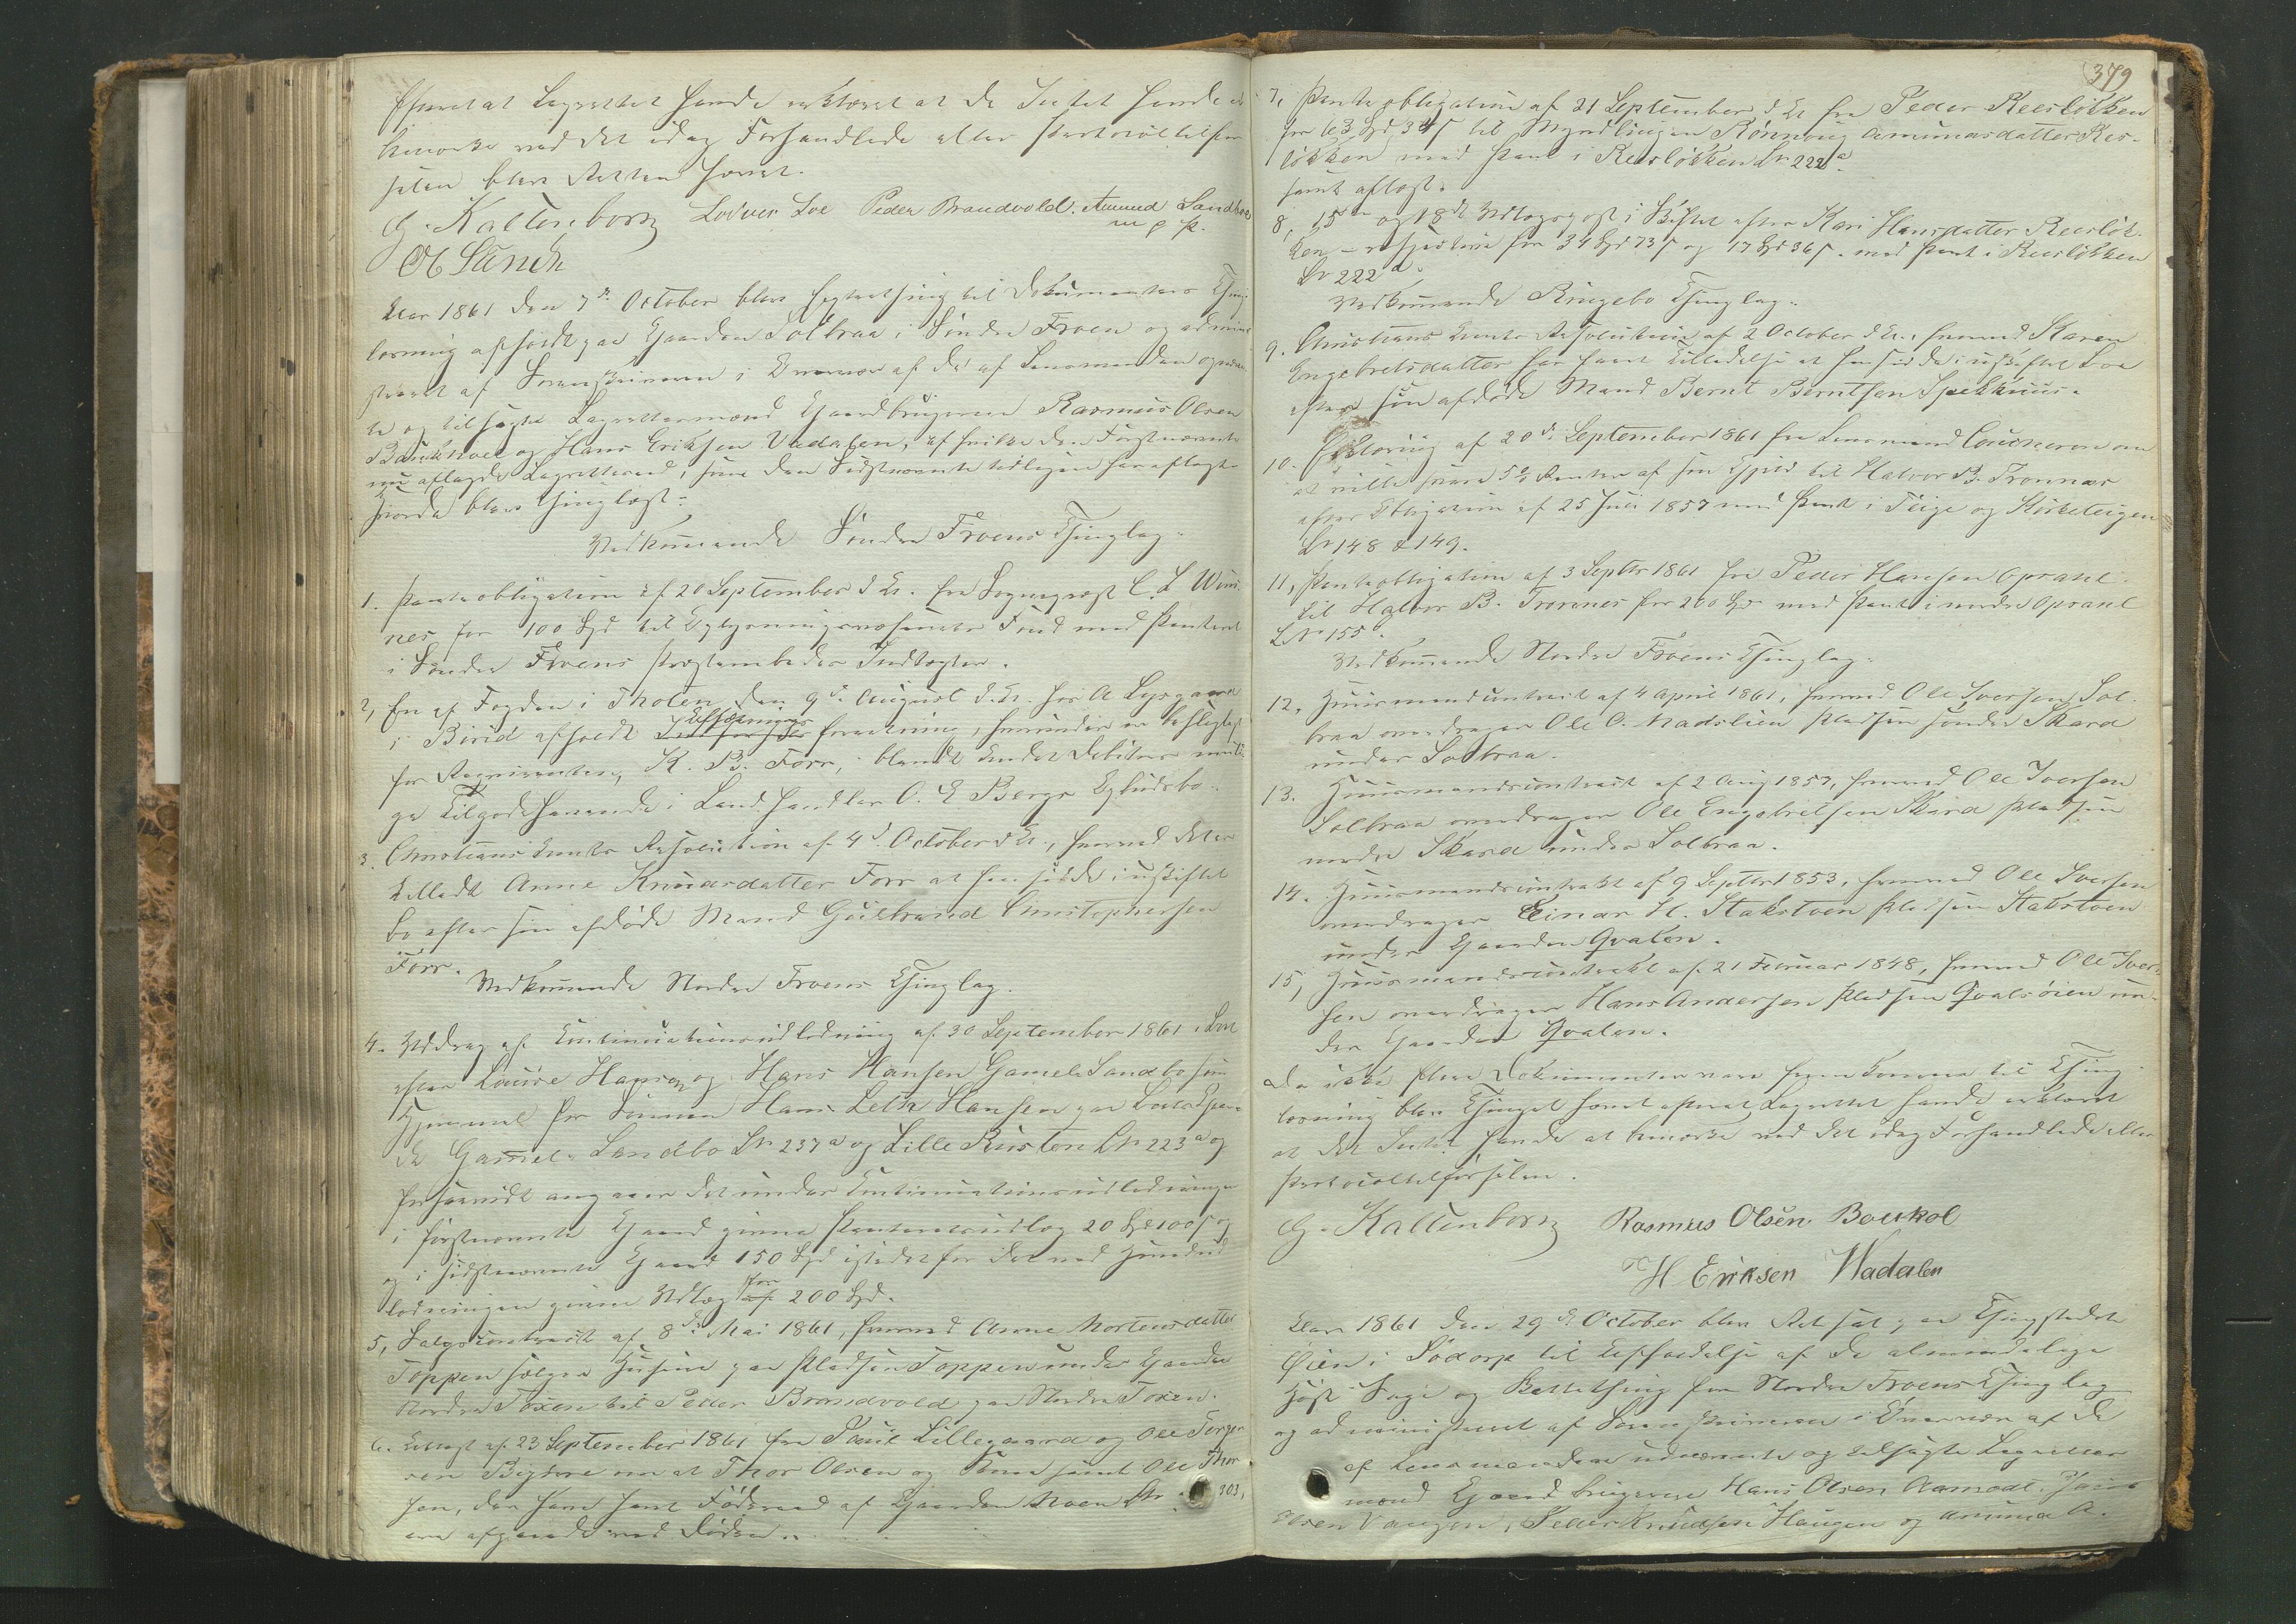 Efterat Lagrettet havde erklæret at de Intet havde at
bemærke ved det idag Forhandlede eller Protocoltilfør-
selen blev Retten hævet.
G. Kaltenborn Lodver Loe Peder Brandvold. Amund Sandboe
m p P.
Ol Sande
Aar 1861 den 7de October blev Extrathing til Dokumenters Thing-
læsning afholdt paa Gaarden Solbraa i Søndre Froen og admini-
streret af Sorenskriveren i Overvær af de af Lensmanden opnævn-
te og tilsagte Lagrettesmænd Gaardbrugerne Rasmus Olsen
Baukhoel og Hans Eriksen Vadalen, af hvilke den Førstnævnte
nu aflagde Lagrettesed, som den Sidstnævnte tidligere har aflagt.
Hvorda blev thinglæst:
Vedkommende Søndre Froens Thinglag.
1. Pantobligation af 20 September d. Ar. fra Sogneprest C. L Wins-
nes for 100 Spd til Oplysningsvæsenets Fond med Panteret
i Søndre Froens Præstembedes Indtægter.
2, En af Fogden i Thoten den 9de August d. Ar. hos A Lysgaard
i Birid afholdt Udlægs forretning, hvorunder er beslaglagt
for Reqvirenten, K. B. Forr, blandt Andet Debitors muli-
ge Tilgodehavende i Land. handler O. E Bergs Opbudsbo.
3. Christians Amts Resolution af 4d. October d Ar., hvorved det er
tilladt Anne Knudsdatter Forr at hensidde i uskiftet
Bo efter sin afdøde Mand Gulbrand Christophersen
Forr.
Vedkommende Nordre Froens Thinglag.
4. Uddrag af Continuationsudlodning af 30 September 1861 i Boet
efter Louise Hansen og Hans Hansen Gamel-Sandbo som
Hjemmel for Sønnen Hans Leth Hansen paa Boets Eien-
de Gamel-Sandbo LN 237a og Lille Rusten LN 223a og
forsaavidt angaar det under Continuationsudlodningen
i førstnævnte Gaard givne Panteretsudlæg 20 Spd 100 s og
og i sidstnævnte Gaard 150 Spd istedetfor det ved Hoved
lodningen givne Udlæg for 200 Spd.
5, Salgscontract af 8d. Mai 1861, hvorved Anne Mortensdatter
Toppen sælger Husene paa Pladsen Toppen under Gaarden
Nordre Toxen til Peder Brandvold paa Nordre Toxen.
6. Attest af 23 September 1861 fra Poul Lillegaard og Ole Torger
sen Bigsere om at Thor Olsen og Kone samt Ole Thor
sen, der have havt Føderaad af Gaarden Moen LN 303,
ere afgaaede ved Døden.
379
7, Pantobligation af 21 September d Ar fra Peder Reesløkken
for 63 Spd 34 s til Myndlingen Rønnoug Amundsdatter Res-
løkken med Pant i Reesløkken LN 222a.
samt aflæst.
8, 15de og 18de Udlægspost i Skiftet efter Kari Hansdatter Reesløk-
ken - respective for 34 Spd 73 s og 17 Spd 36 s. med Pant i Reesløkken
LN 222a.
Vedkommende Ringebo Thinglag.
9. Christians Amts Resolution af 2 October d Ar. hvorved Karen
Engebretsdatter har faaet Tilladelse at hensidde i uskiftet Boe
efter sin afdøde Mand Bernt Berntsen Spekhuus.
10. Erklæring af 20d. September 1861 fra Lensmand Lauskeren om
at ville svare 5% Renter af sin Gjæld til Halvor B. Tromnæs
efter Obligation af 25 Juli 1857 med Pant i Teige og Kirketeigen
LN 148 & 149.
11, Pantobligation af 3 Septbr 1861 fra Peder Hansen Opsahl
til Halvor B. Tromnes for 200 Spd med Pant i nordre Opsahl
LN 155.
Vedkommende Nordre Froens Thinglag.
12, Huusmandscontract af 4 April 1861, hvorved Ole Iversen Sol-
braa overdrager Ole O. Madslien Pladsen søndre Skard
under Solbraa.
13. Huusmandscontract af 2 Aug 1857, hvorved Ole Iversen
Solbraa overdrager Ole Engebretsen Skard Pladsen
nordre Skard under Solbraa.
14. Huusmandscontrakt af 9 Septbr 1853, hvorved Ole Iversen
overdrager Einar H. Stakstoen Pladsen Stakstoen
under Gaarden Qvalen.
15, Huusmandscontrakt af 21 Februar 1848, hvorved Ole Iver-
sen overdrager Hans Andersen Pladsen Qvalsøien un-
der Gaarden Qvalen.
Da ikke flere Dokumenter vare fremkomne til Thing-
læsning blev Thinget hævet efterat Lagrettet havde erklæret
at det Intet havde at bemærke ved det idag Forhandlede eller
Protocoltilførselen.
G. Kaltenborn Rasmus Olsen. Boukol
H Eriksen Wadalen
Aar 1861 den 29de October blev Ret sat paa Thingstedet
Øien i Sødorp til Afholdelse af de almindelige
Høst- Sage og Skattething for Nordre Froens Thinglag
og administreret af Sorenskriveren i Overvær af de
af Lensmanden udnævnte og tilsagte Lagrettes
mænd Gaardbrugerne Hans Olsen Aamodt,
Olsen Vangen, Peder Knudsen Haugen og Amund A.